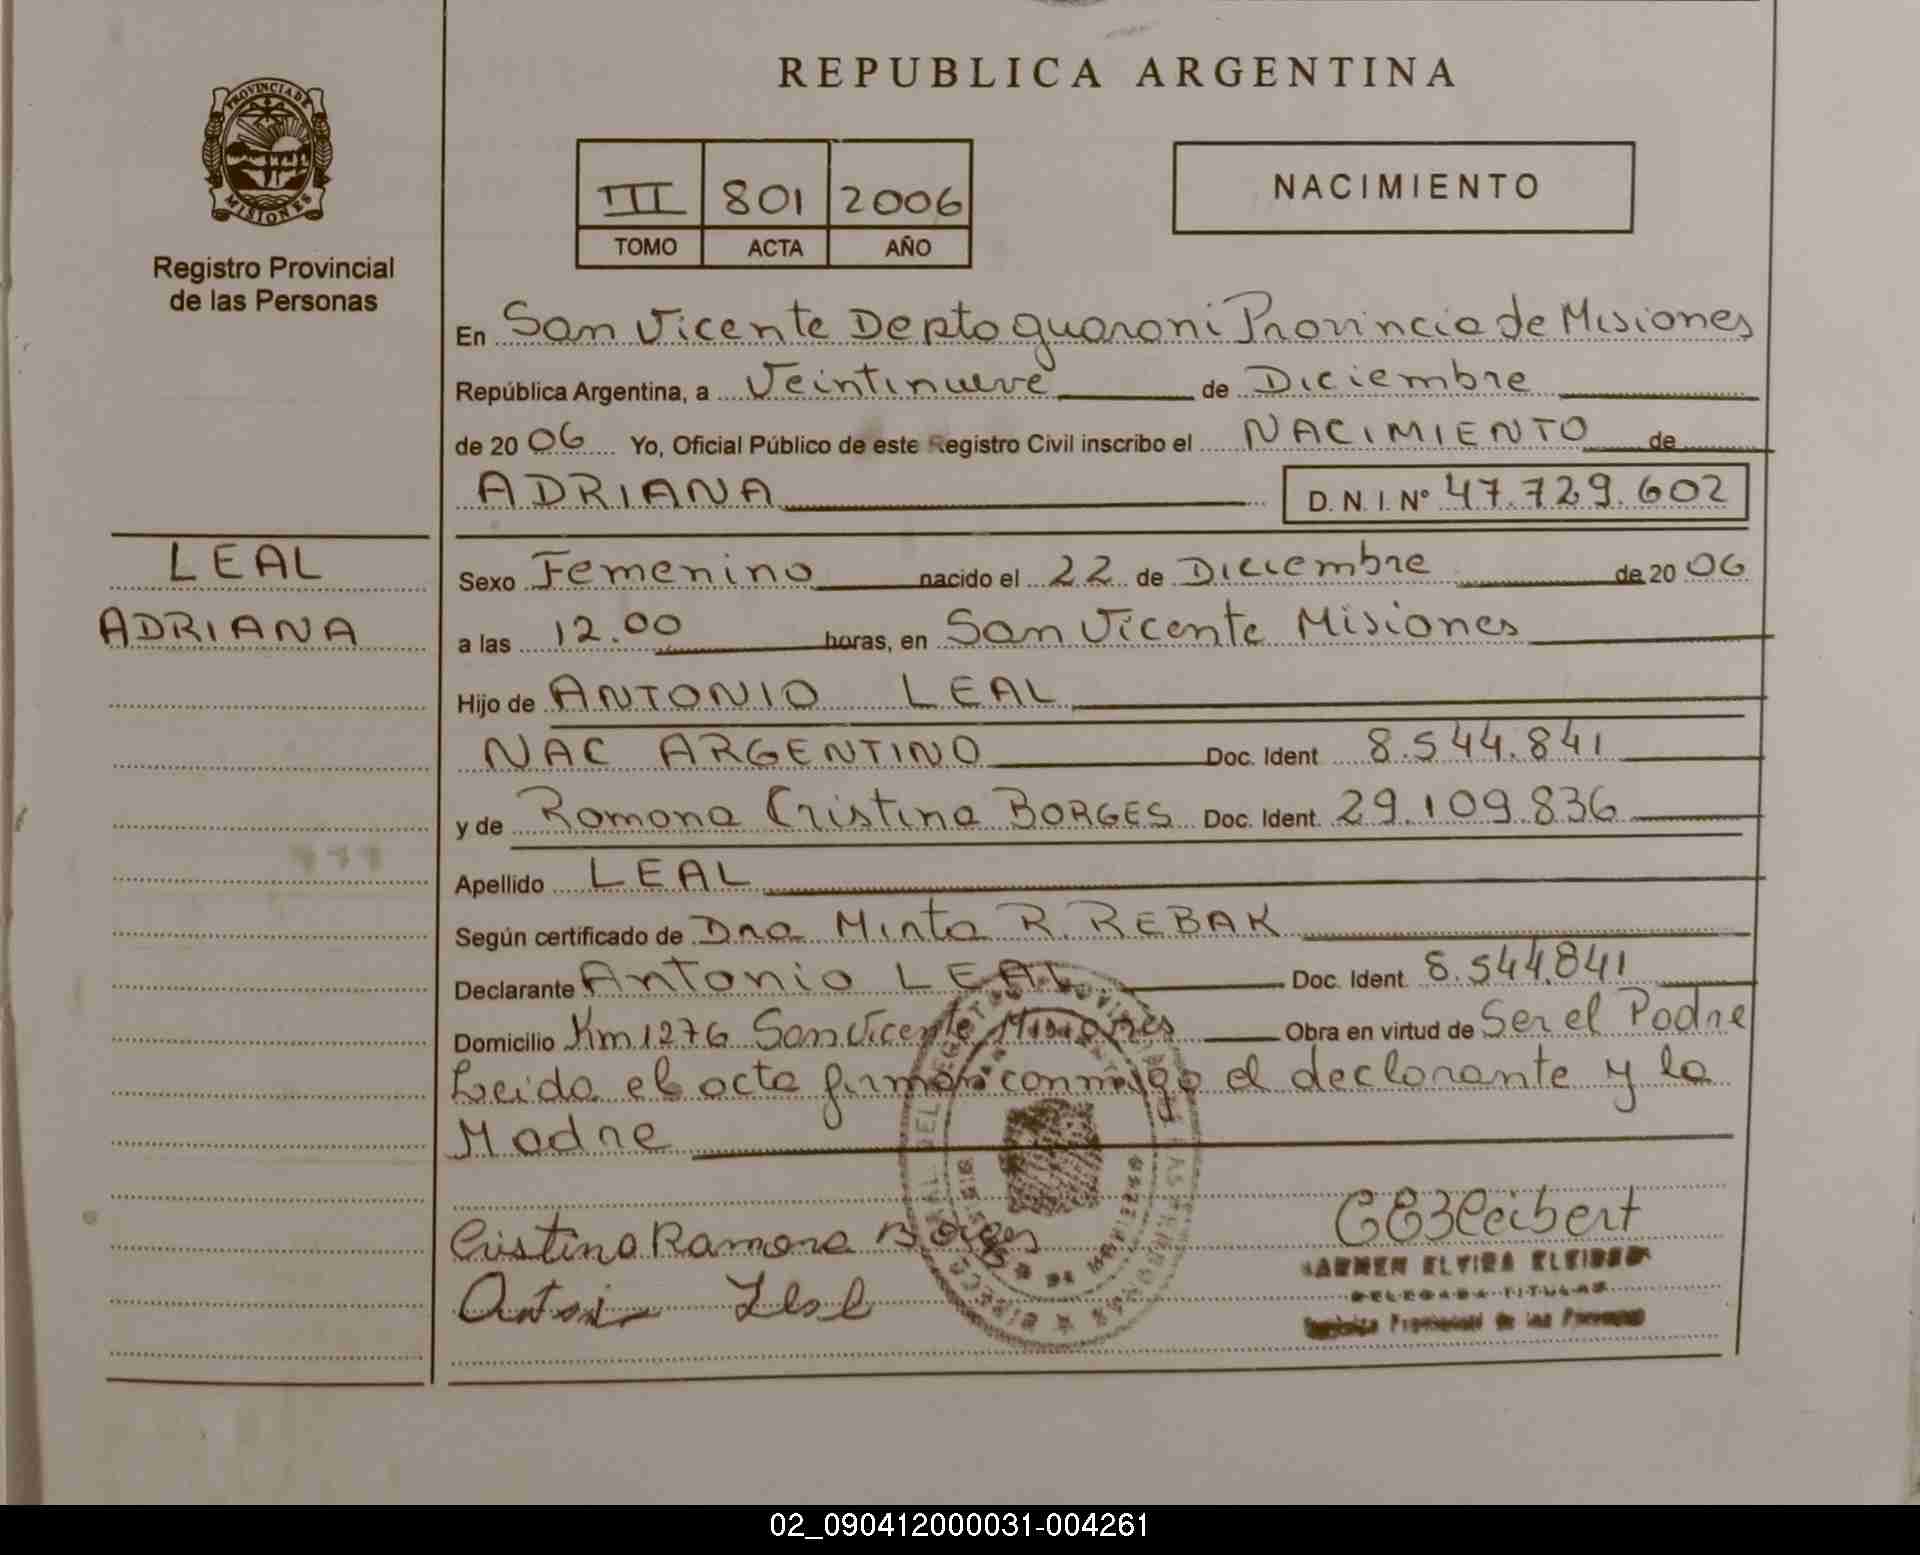 REPUBLICA ARGENTINA
PROVINCIA DE
MISIONES
Registro Provincial
de las Personas
III 801 2006
TOMO ACTA AÑO
NACIMIENTO
En San Vicente Depto guarani Provincia de Misiones
República Argentina, a Veintinueve de Diciembre
de 20 06 Yo, Oficial Público de este Registro Civil inscribo el NACIMIENTO de
ADRIANA D. N. I. Nº 47.729.602
LEAL
ADRIANA
Sexo Femenino nacido el 22 de Diciembre de 20 06
a las 12.00 horas, en San Vicente Misiones
Hijo de ANTONIO LEAL
NAC ARGENTINO Doc. Ident 8.544.841
y de Ramona Cristina BORGES Doc. Ident. 29.109.836
Apellido LEAL
Según certificado de Dra Mirta R. REBAK
Declarante Antonio LEAL Doc. Ident. 8.544.841
Domicilio Km 1276 San Vicente Misiones Obra en virtud de Ser el Padre
Leida el acta firman conmigo el declarante y la
Madre
Cristina Ramona Borges
Antonio Leal
CEKleibert
ELVIRA
DELEGADA TITULAR
Provincial de las Personas
02_090412000031-004261